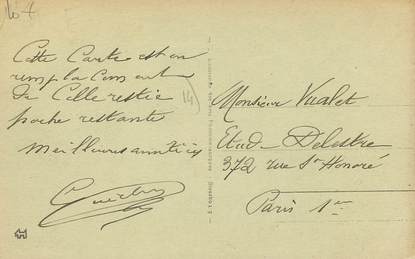 Cette Carte est en
remplacement
de Celle restée
poste restante
Meilleures amitiés
Monsieur
Etud- Delestre
372 rue St Honoré
Paris 1er